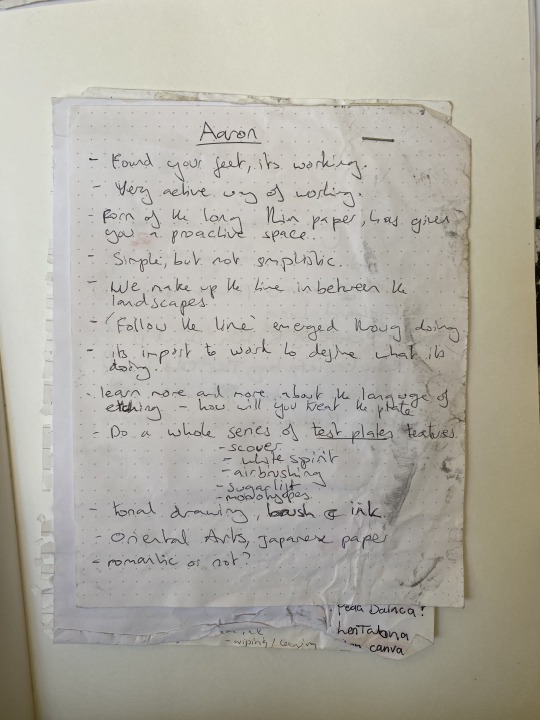 Aaron
- Found your feet, its working.
- Very active way of working.
- Form of the long thin paper, has given
you a proactive space.
- Simple, but not simplistic.
- We make up the line inbetween the
landscapes.
- 'Follow the line' emerged throug doing
- its import to work to define what its
doing.
- learn more and more about the language of
etching - how will you treat the plate
- Do a whole series of test plates textures
- scover
- white spirit
- airbrushing
- sugarlift
- monotypes
- tonal drawing, brush & ink.
- Oriental Arts, Japanese paper
- romantic or not?
- wiping /
canva